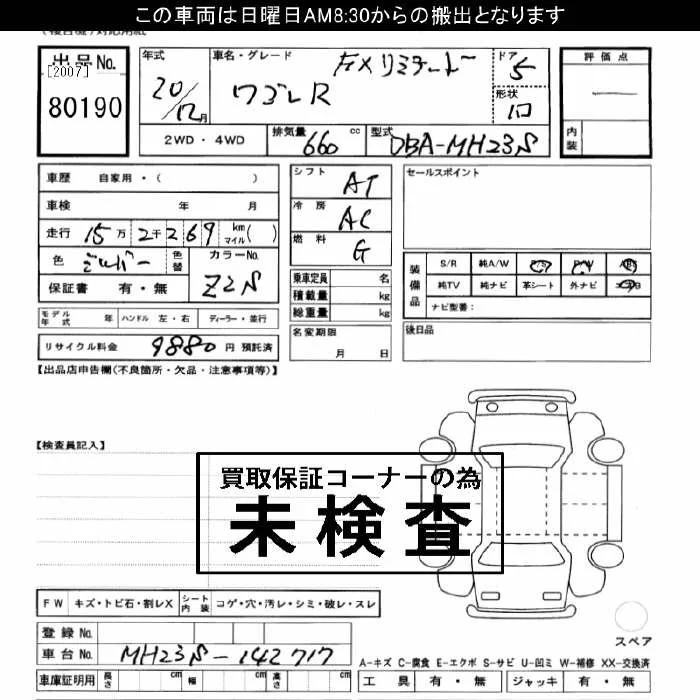 この車両は日曜日AM8:30からの搬出となります
出品No.
[2007]
80190
年式
20/12月
車名・グレード
ワゴンR FXリミテッド
ドア
5
形状
評価点
内装
2WD・4WD
排気量 660 cc
型式 DBA-MH23S
車歴 自家用・( )
車検 年 月
走行 15万2千269 km マイル( )
色 シルバー 色替
カラーNo. Z2S
保証書 有・無
モデル年式 年 ハンドル 左・右 ディーラー・並行
リサイクル料金 9880 円 預託済
シフト AT
冷房 AC
燃料 G
乗車定員 名
積載量 kg
総重量 kg
名変期限
月 日
セールスポイント
装備品
S/R 純A/W P/S P/W ABS
純TV 純ナビ 革シート 外ナビ
ナビ型番:
後日品
【出品店申告欄(不良箇所・欠品・注意事項等)】
【検査員記入】
買取保証コーナーの為
未検査
FW キズ・トビ石・割レX シート内装 コゲ・穴・汚レ・シミ・破レ・スレ
登録No.
車台No. MH23S-142717
車庫証明用 長さ cm 幅 cm 高さ cm
スペア
A-キズ C-腐食 E-エクボ S-サビ U-凹ミ W-補修 XX-交換済
工具 有・無 ジャッキ 有・無